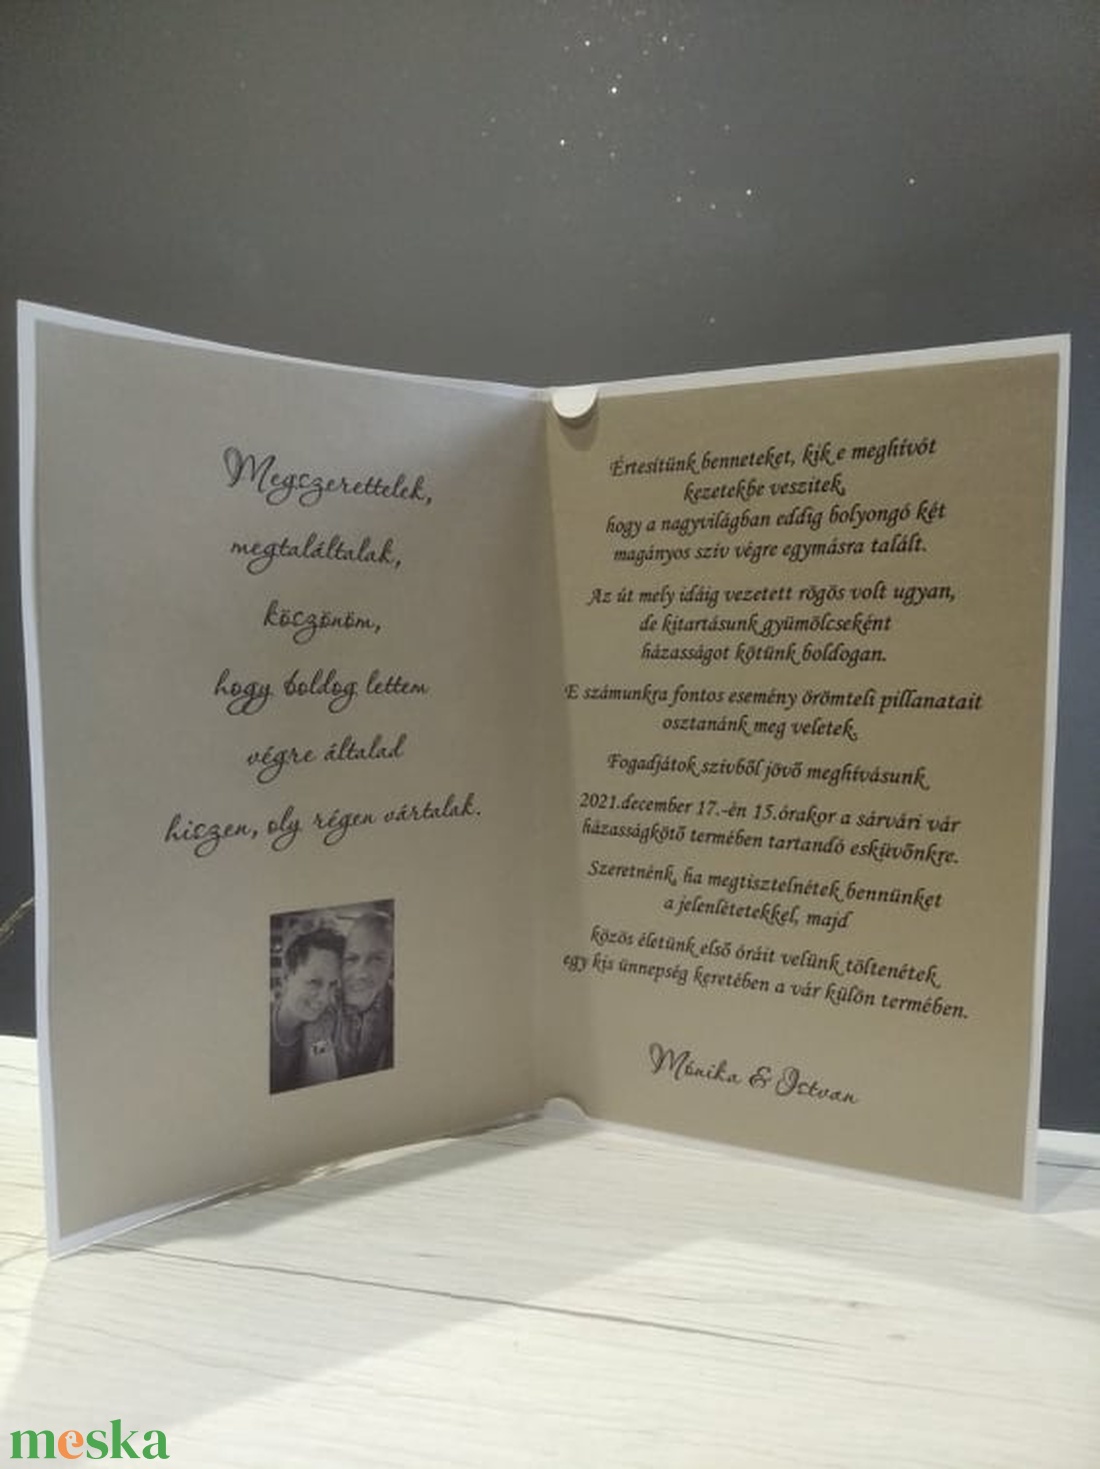 Megszerettelek,
megtaláltalak,
köszönöm,
hogy boldog lettem
végre általad
hiszen, oly régen vártalak.
Értesítünk benneteket, kik e meghívót
kezetekbe veszitek,
hogy a nagyvilágban eddig bolyongó két
magányos szív végre egymásra talált.
Az út mely idáig vezetett rögös volt ugyan,
de kitartásunk gyümölcseként
házasságot kötünk boldogan.
E számunkra fontos esemény örömteli pillanatait
osztanánk meg veletek.
Fogadjátok szívből jövő meghívásunk
2021.december 17.-én 15.órakor a sárvári vár
házasságkötő termében tartandó esküvőnkre.
Szeretnénk, ha megtisztelnétek bennünket
a jelenlétetekkel, majd
közös életünk első óráit velünk töltenétek
egy kis ünnepség keretében a vár külön termében.
Mónika & Istvan
meska